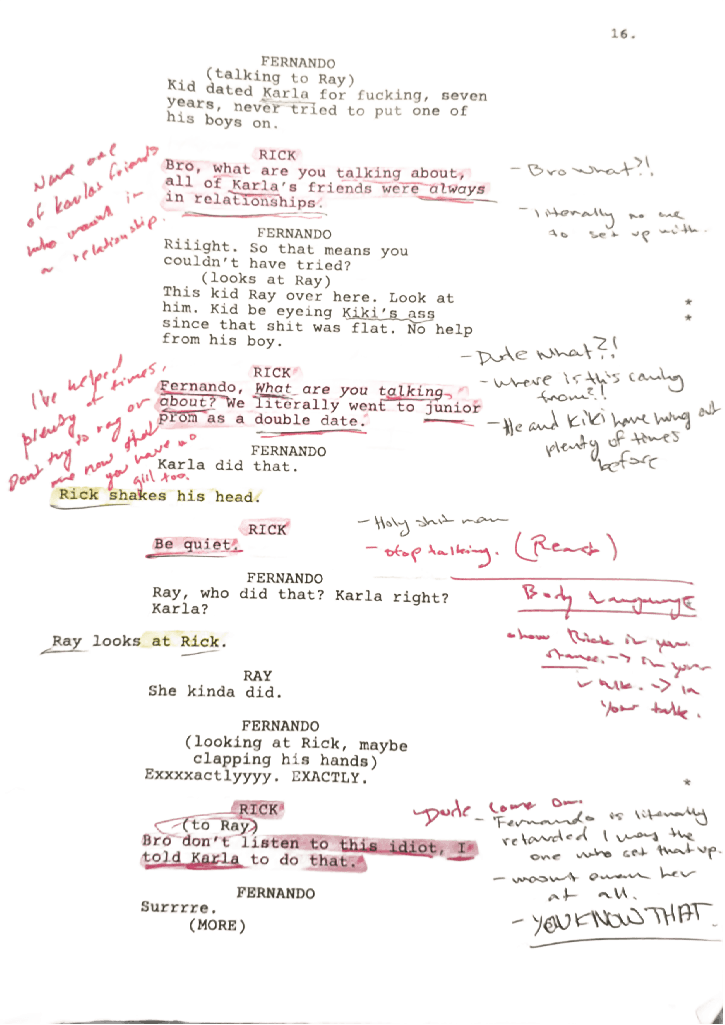 16.
FERNANDO
(talking to Ray)
Kid dated Karla for fucking, seven
years, never tried to put one of
his boys on.
Name one
of Karlas friends
who wasnt in
a relationship.
RICK
Bro, what are you talking about,
all of Karla's friends were always
in relationships.
- Bro what?!
- literally no one
to set up with.
FERNANDO
Riiight. So that means you
couldn't have tried?
(looks at Ray)
This kid Ray over here. Look at
him. Kid be eyeing Kiki's ass
since that shit was flat. No help
from his boy.
*
*
I've helped
plenty of times,
Dont try to say or
me now that
you have no
girl too.
RICK
Fernando, What are you talking
about? We literally went to junior
prom as a double date.
- Dude what?!
- where is this coming
from?!
- He and Kiki have hung out
plenty of times
before
FERNANDO
Karla did that.
Rick shakes his head.
RICK
Be quiet.
- Holy shit man
- stop talking. (React)
FERNANDO
Ray, who did that? Karla right?
Karla?
Body Language
show Rick in your
stance. -> in your
talk. -> in
your talk.
Ray looks at Rick.
RAY
She kinda did.
FERNANDO
(looking at Rick, maybe
clapping his hands)
Exxxxactlyyyy. EXACTLY.
*
RICK
(to Ray)
Bro don't listen to this idiot, I
told Karla to do that.
Dude come on.
- Fernando is literally
retarded I was the
one who set that up.
- wasnt even her
at all.
- YOU KNOW THAT.
FERNANDO
Surrrre.
(MORE)